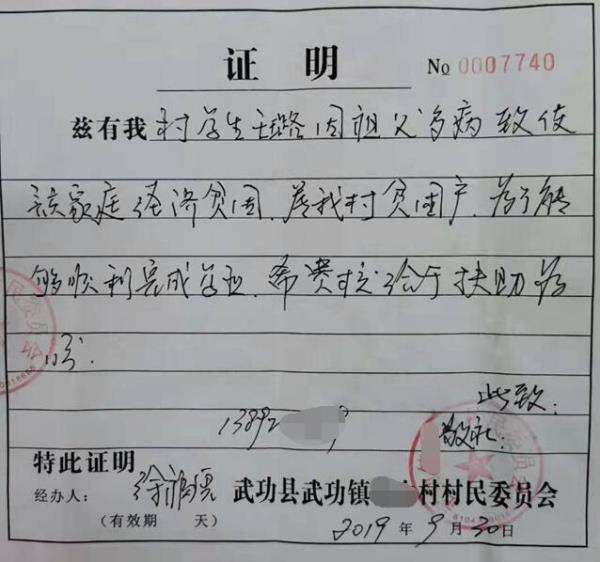 证 明
No 0007740
兹有我村学生王璐因祖父多病致使
该家庭经济贫困.属我村贫困户.为了能
够顺利完成学业.希贵校给予扶助为
盼.
此致:
敬礼.
13892
特此证明
经办人: 徐 武功县武功镇 村村民委员会
(有效期 天) 2019 年 9 月 30 日